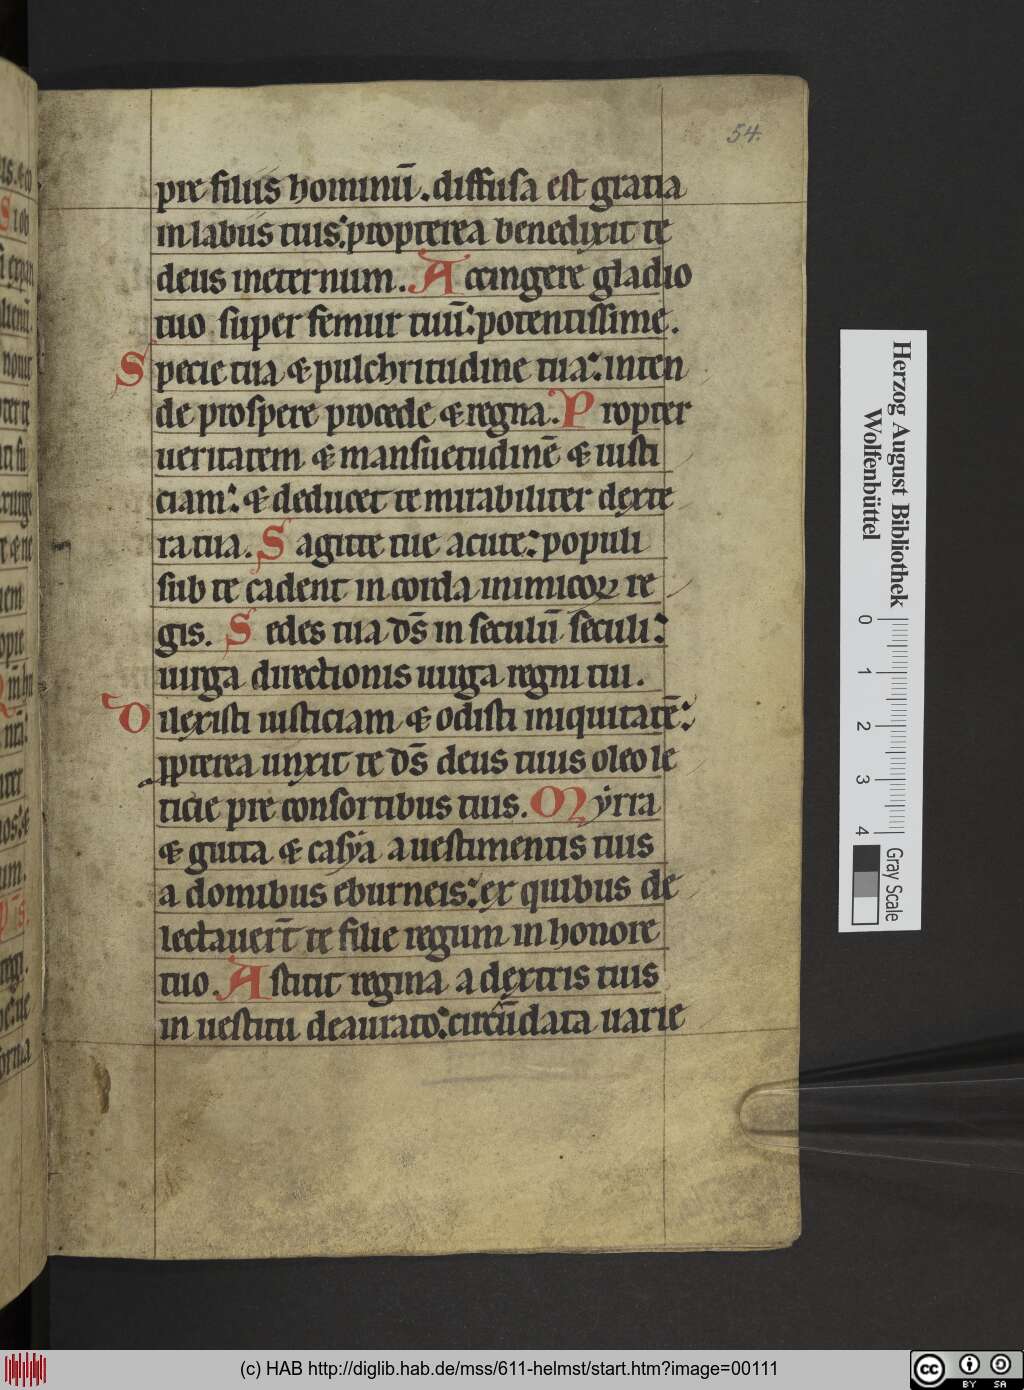 54.
pre filiis hominū. diffusa est gratia
in labiis tuis: propterea benedixit te
deus ineternum. Accingere gladio
tuo super femur tuū: potentissime.
Specie tua & pulchritudine tua: inten
de prospere procede & regna. Propter
ueritatem & mansuetudinē & iusti
ciam: & deducet te mirabiliter dexte
ra tua. Sagitte tue acute: populi
sub te cadent in corda inimicoꝝ re
gis. Sedes tua ds̄ in seculū seculi:
uirga directionis uirga regni tui.
Dilexisti iusticiam & odisti iniquitatē:
ꝓpterea unxit te ds̄ deus tuus oleo le
ticie pre consortibus tuis. Myrra
& gutta & casya a uestimentis tuis
a domibus eburneis: ex quibus de
lectauer̄t te filie regum in honore
tuo. Astitit regina a dextris tuis
in uestitu deaurato: circūdata uarie
Herzog August Bibliothek
Wolfenbüttel
0 1 2 3 4
Gray Scale
(c) HAB http://diglib.hab.de/mss/611-helmst/start.htm?image=00111
cc BY SA